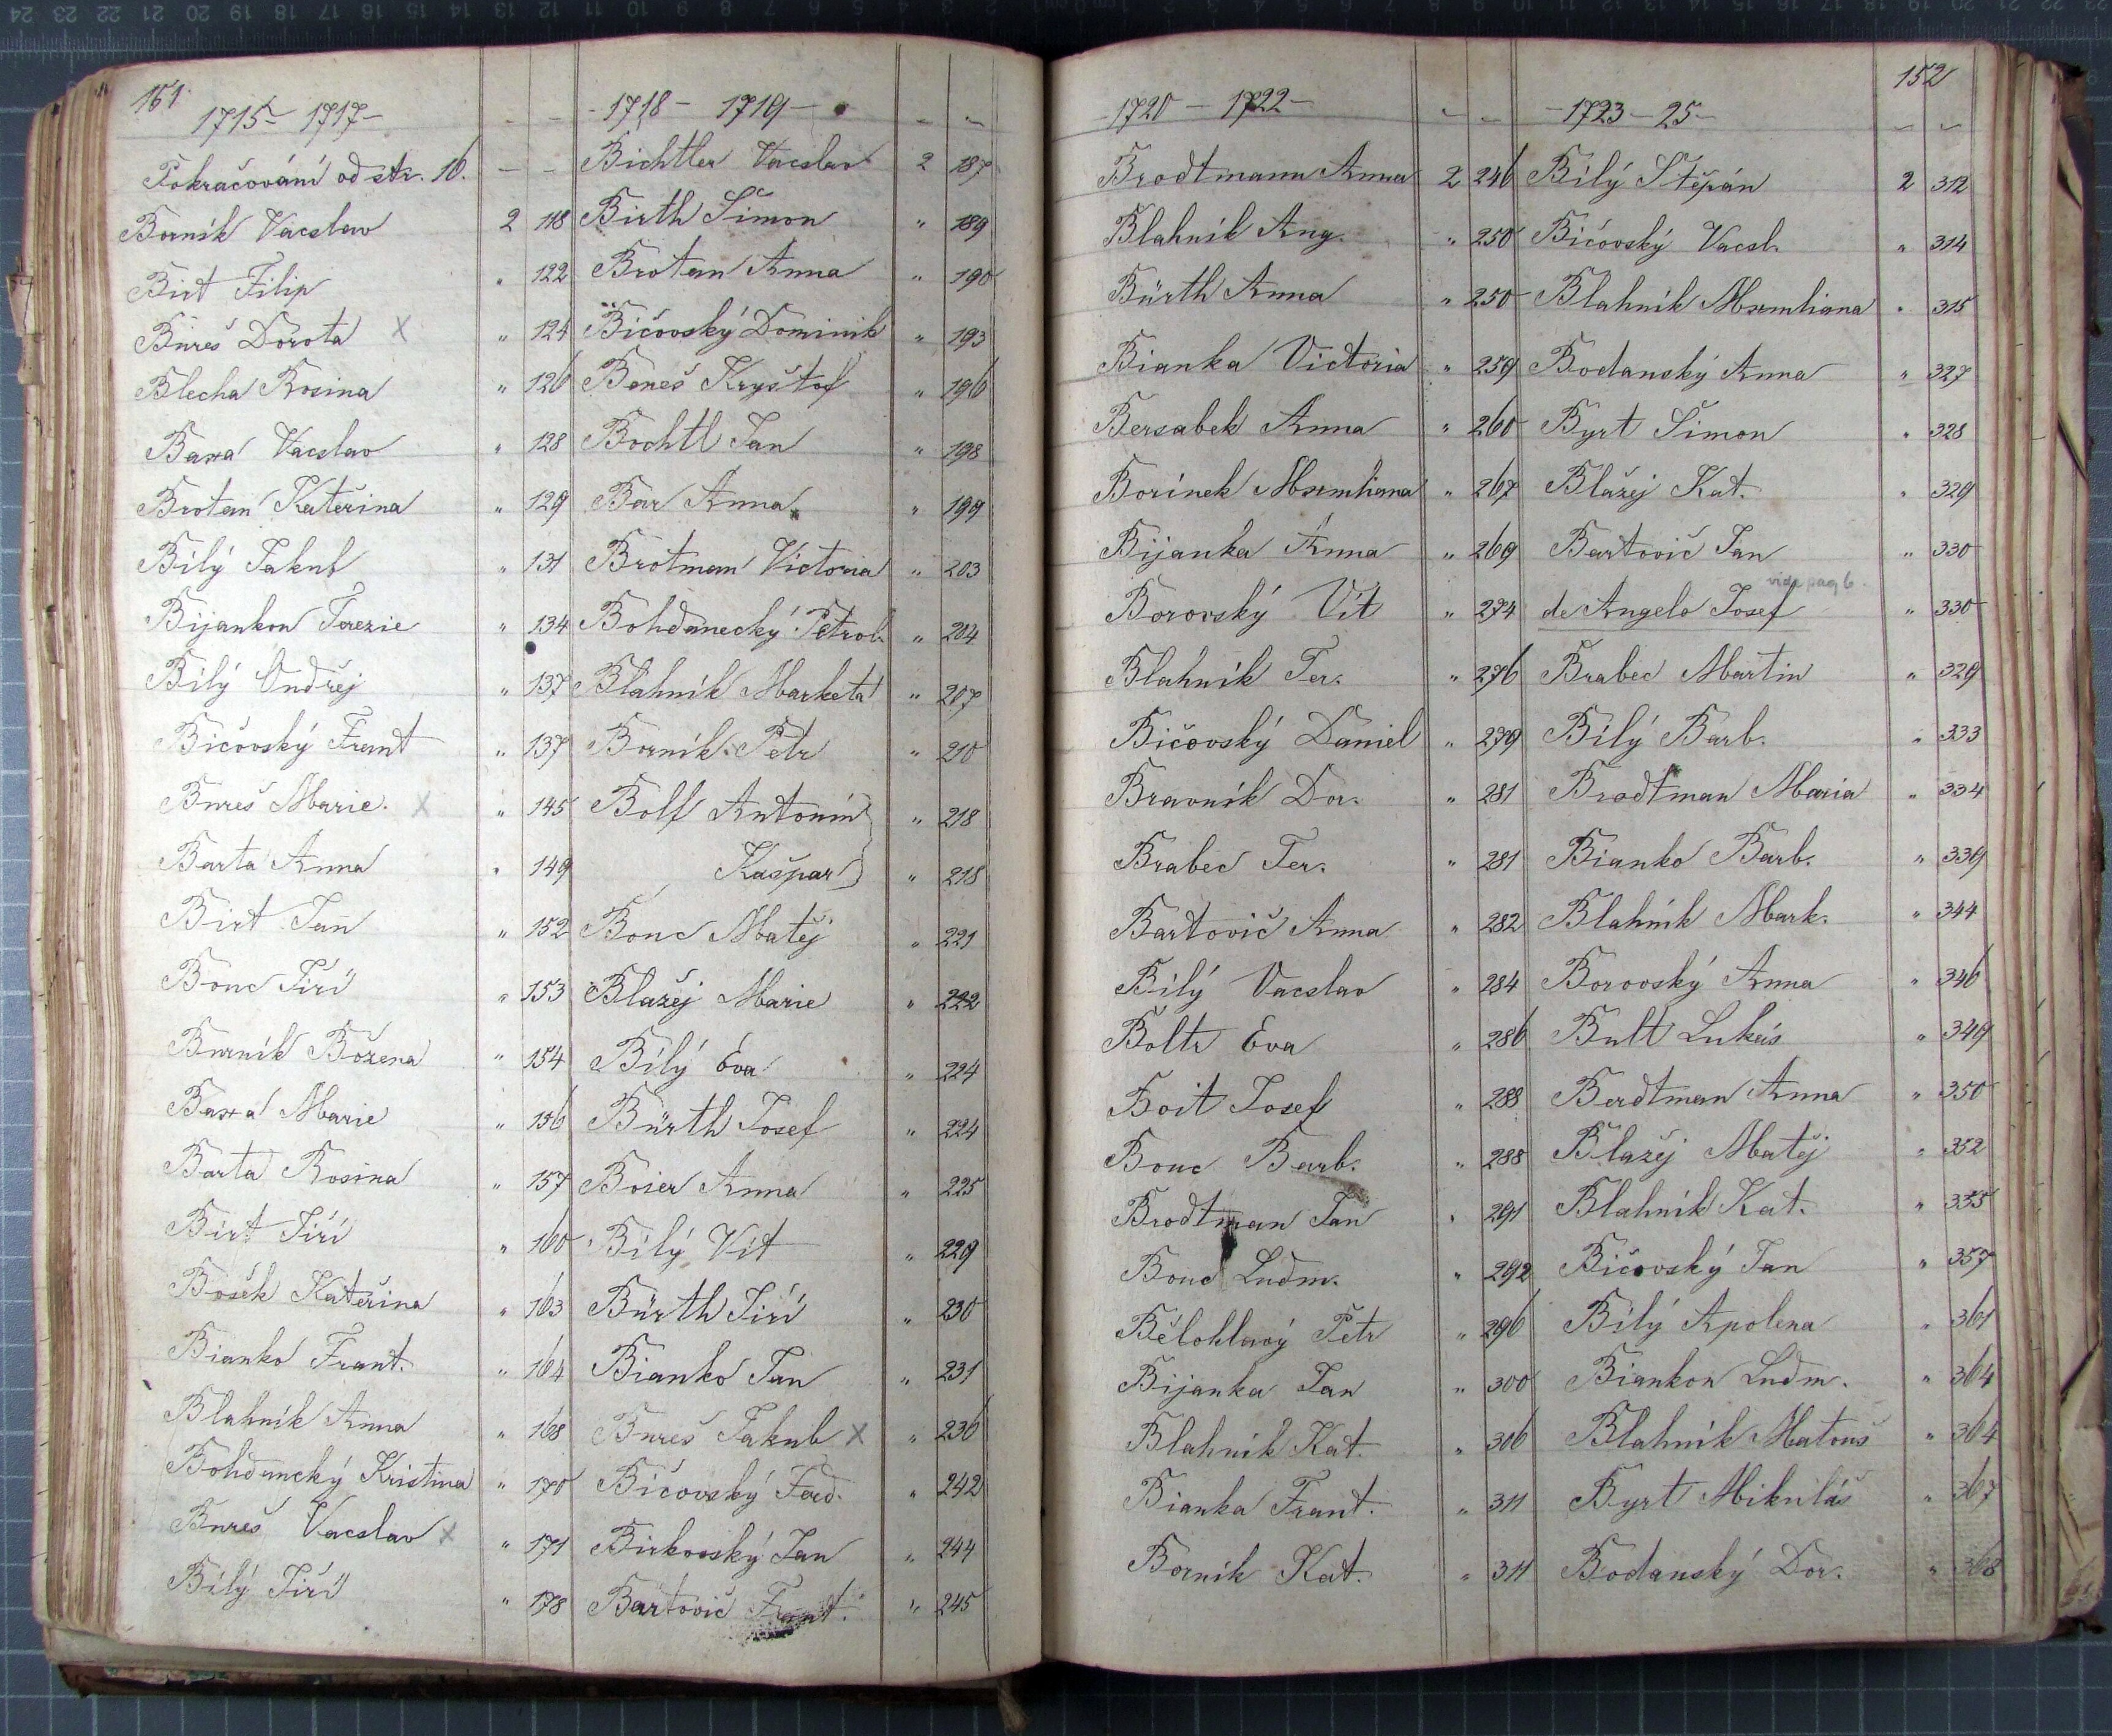 151.
1715 - 1717 -
Pokračování od str. 16. — —
Borník Vacslav 2 118
Birt Filip " 122
Bureš Dorota x " 124
Blecha Rosina " 126
Baxa Vacslav " 128
Brotan Kateřina " 129
Bílý Jakub " 131
Bijankon Terezie " 134
Bílý Ondřej " 137
Bičovský Frant " 137
Bureš Marie. x " 145
Barta Anna " 149
Birt Jan " 152
Bonc Jiří " 153
Burník Božena " 154
Baxa Marie " 156
Barta Rosina " 157
Birt Jiří " 160
Bošek Kateřina " 163
Bianko Frant. " 164
Blahník Anna " 168
Bohdancký Kristina " 170
Bureš Vacslav x " 171
Bílý Jiří " 178
- 1718 - 1719 -
Bichtler Vacslav 2 187
Birth Šimon " 189
Brotan Anna " 190
Bičovský Dominik " 193
Beneš Kryštof " 196
Bochtl Jan " 198
Bar Anna " 199
Brotman Victoria " 203
Bohdanecký Petrol. " 204
Blahník Marketa " 207
Borník Petr " 210
Bolf Antonín " 218
Kašpar " 218
Bonc Matěj " 221
Blažej Marie " 222
Bílý Eva " 224
Bürth Josef " 224
Boier Anna " 225
Bílý Vít " 229
Bürth Jiří " 230
Bianko Jan " 231
Bureš Jakub x " 236
Bičovský Ferd. " 242
Birkovský Jan " 244
Bartovič Frant. " 245
152
- 1720 - 1722 -
Brodtmann Anna 2 246
Blahník Ang. " 250
Bürth Anna " 250
Bianka Victoria " 259
Bersabek Anna " 260
Borínek Maxmiliana " 267
Bijanka Anna " 269
Borovský Vít " 274
Blahník Ter. " 276
Bičovský Daniel " 279
Bravník Dor. " 281
Brabec Ter. " 281
Bartovič Anna " 282
Bílý Vacslav " 284
Boltr Eva " 286
Boit Josef " 288
Bonc Barb. " 288
Brodtman Jan " 291
Bonc Ludm. " 292
Bělohlavý Petr " 296
Bijanka Jan " 300
Blahník Kat. " 306
Bianka Frant. " 311
Borník Kat. " 311
- 1723 - 25 -
Bílý Štěpán 2 312
Bičovský Vacsl. " 314
Blahník Maxmliana " 315
Bodanský Anna " 327
Byrt Šimon " 328
Blažej Kat. " 329
Bartovič Jan " 330
vide pag 6.
de Angelo Josef " 330
Brabec Martin " 329
Bílý Barb. " 333
Brodtman Maria " 334
Bianko Barb. " 339
Blahník Mark. " 344
Borovský Anna " 346
Bult Lukáš " 349
Berdtman Anna " 350
Blažej Matěj " 352
Blahník Kat. " 355
Bičovský Jan " 357
Bílý Apolena " 361
Biankon Ludm. " 364
Blahník Matouš " 364
Byrt Mikuláš " 367
Bodanský Dor. " 368